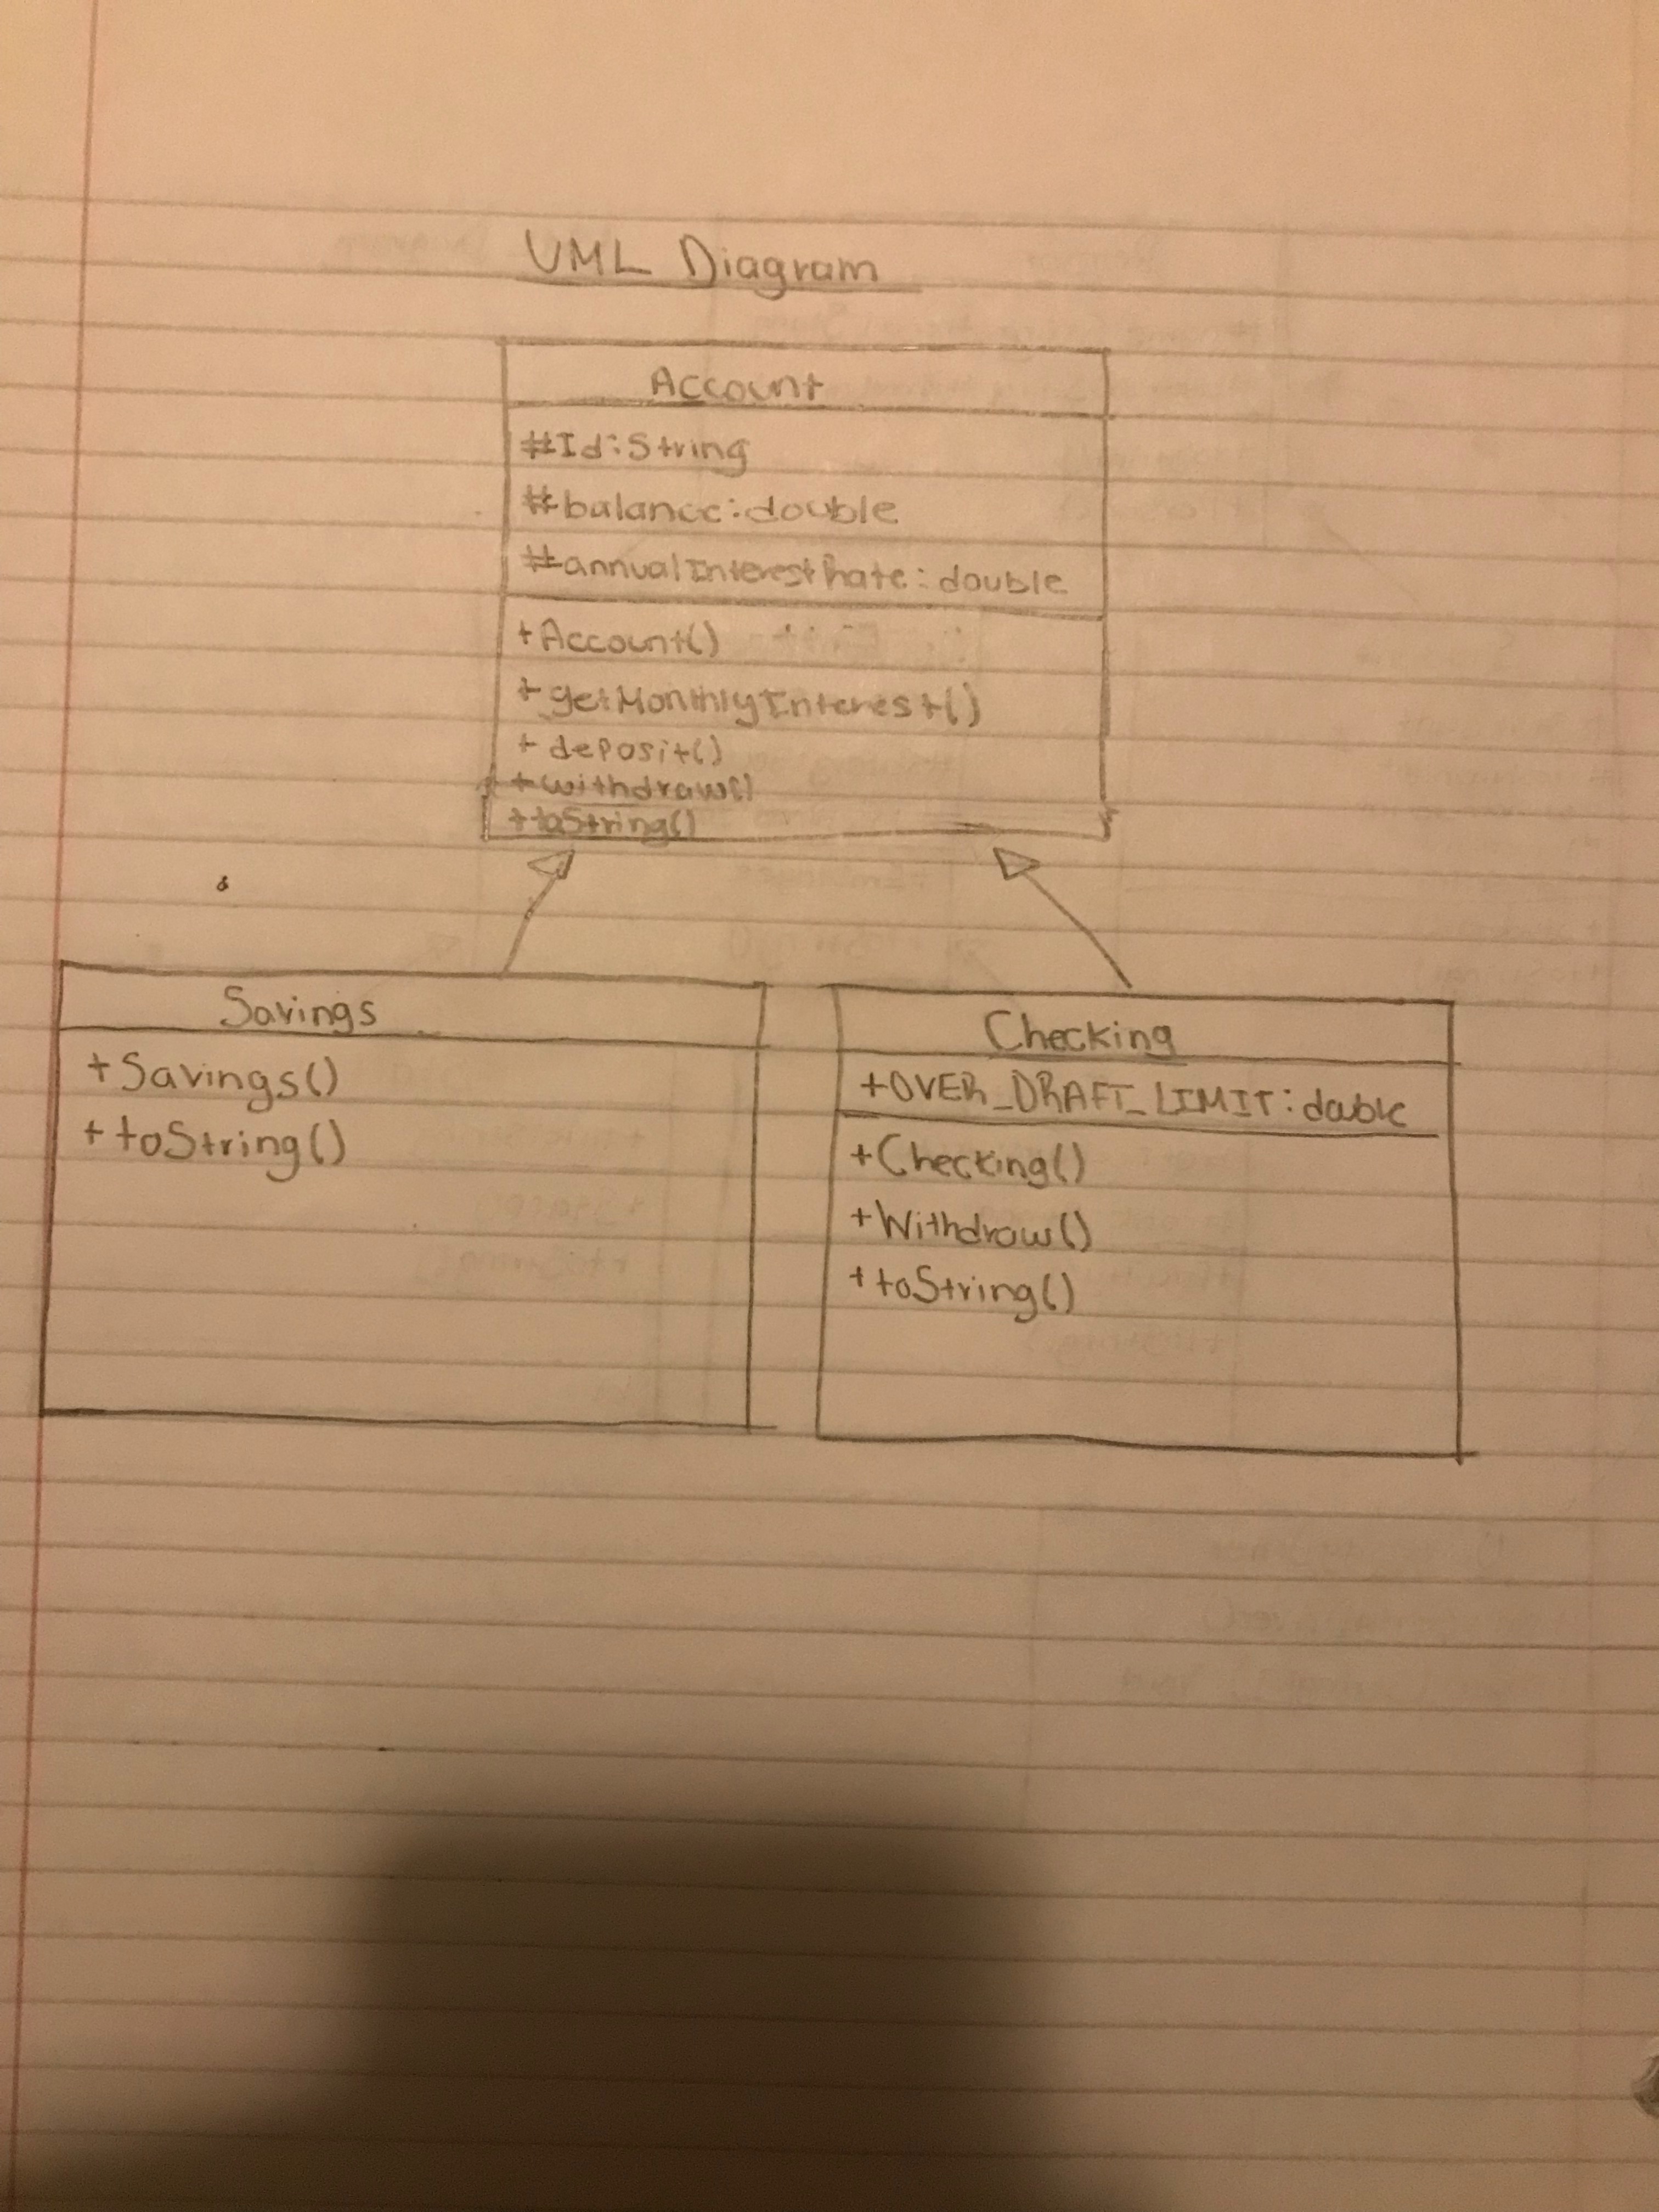 UML Diagram
Account
#Id:String
#balance:double
#annualInterestRate:double
+Account()
+getMonthlyInterest()
+deposit()
+withdraw()
+toString()
Savings
+Savings()
+toString()
Checking
+OVER_DRAFT_LIMIT:double
+Checking()
+Withdraw()
+toString()